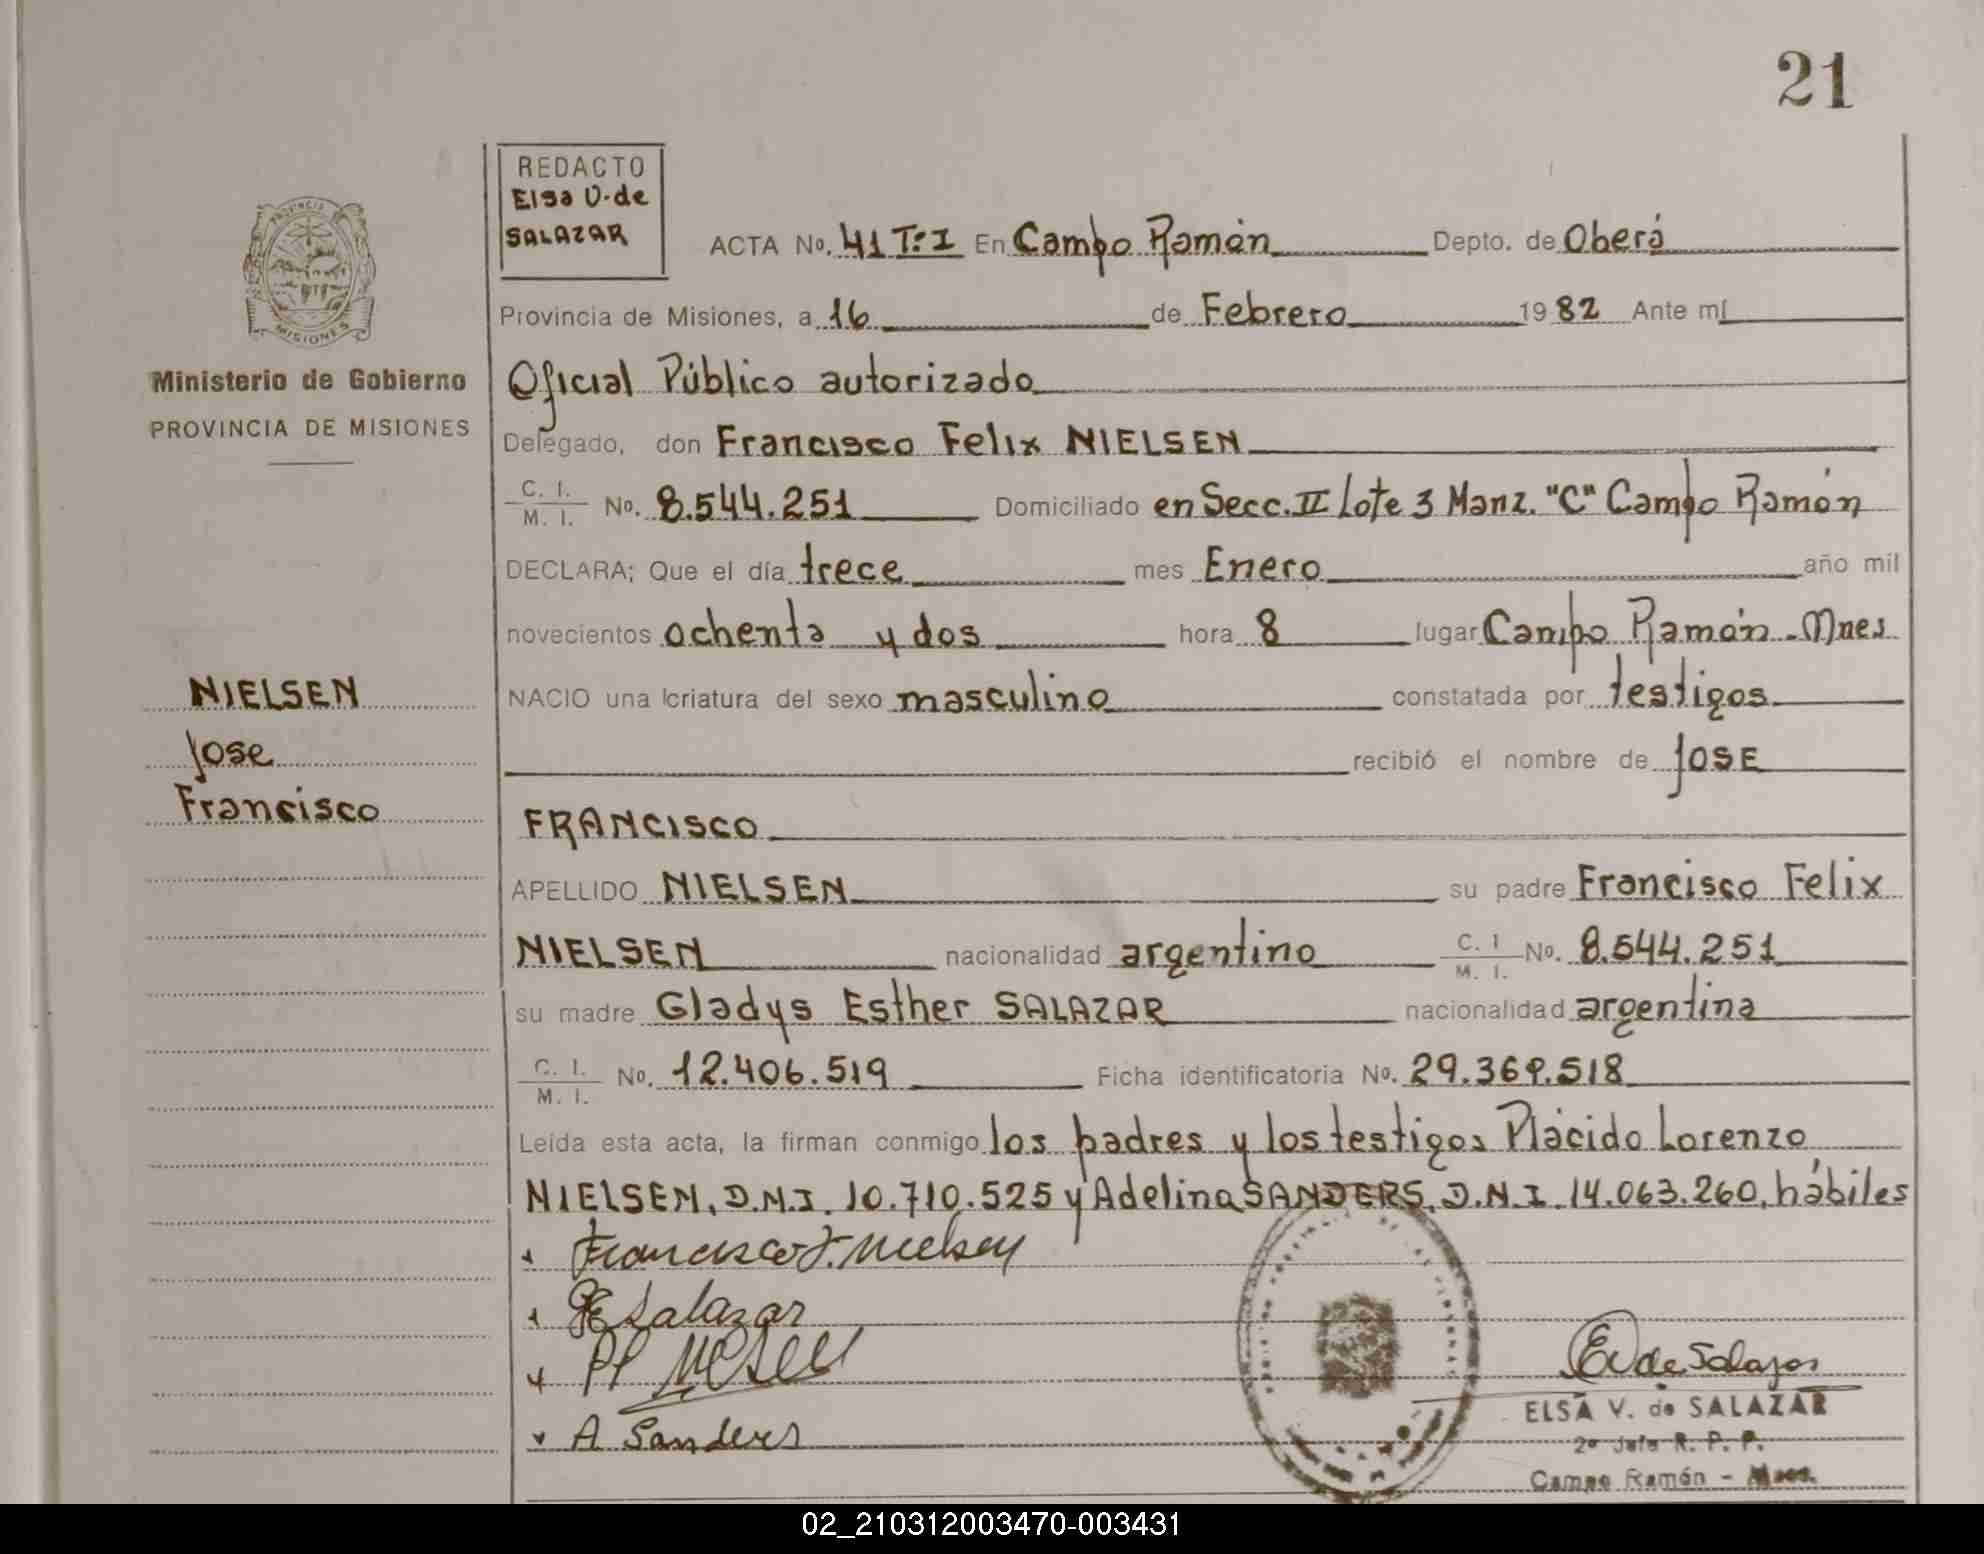 21
REDACTO
Elsa V. de
SALAZAR
ACTA No. 41 T:I En Campo Ramón Depto. de Oberá
PROVINCIA
MISIONES
Provincia de Misiones, a 16 de Febrero 1982 Ante mí
Ministerio de Gobierno
PROVINCIA DE MISIONES
Oficial Público autorizado
Delegado, don Francisco Felix NIELSEN
C. I. / M. I. No. 8.544.251 Domiciliado en Secc. II Lote 3 Manz. "C" Campo Ramón
DECLARA; Que el día trece mes Enero año mil
novecientos ochenta y dos hora 8 lugar Campo Ramón - Mnes
NIELSEN
Jose
Francisco
NACIO una criatura del sexo masculino constatada por testigos
recibió el nombre de JOSE
FRANCISCO
APELLIDO NIELSEN su padre Francisco Felix
NIELSEN nacionalidad argentino C. I / M. I. No. 8.544.251
su madre Gladys Esther SALAZAR nacionalidad argentina
C. I. / M. I. No. 12.406.519 Ficha identificatoria No. 29.369.518
Leída esta acta, la firman conmigo los padres y los testigos Plácido Lorenzo
NIELSEN, D.N.I. 10.710.525 y Adelina SANDERS, D.N.I. 14.063.260, hábiles
Francisco F. Nielsen
GE Salazar
A Sanders
E V de Salazar
ELSA V. de SALAZAR
2º Jefe R. P. P.
Campo Ramón - Mnes.
02_210312003470-003431